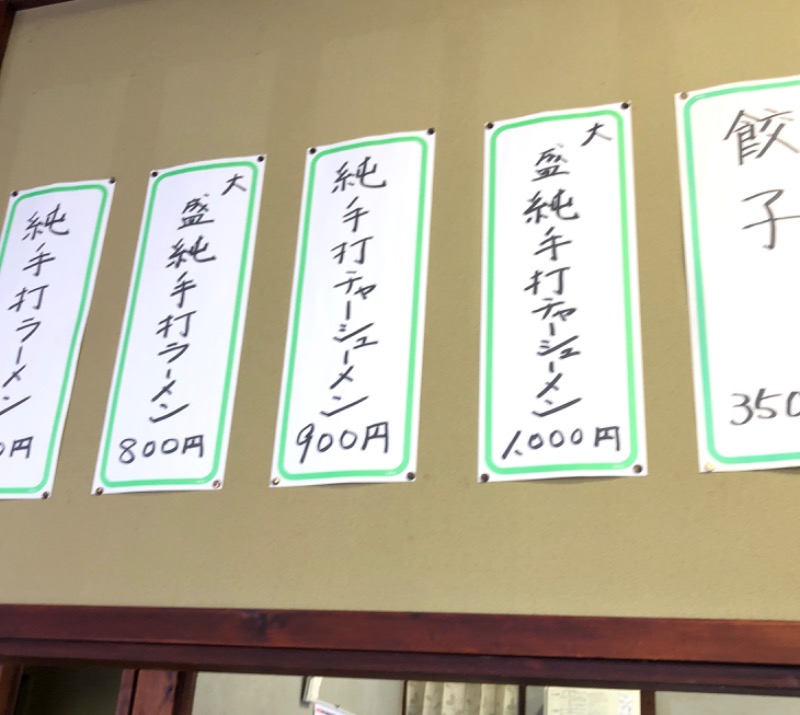 純手打ラーメン
0円
大盛純手打ラーメン
800円
純手打チャーシューメン
900円
大盛純手打チャーシューメン
1,000円
餃子
350